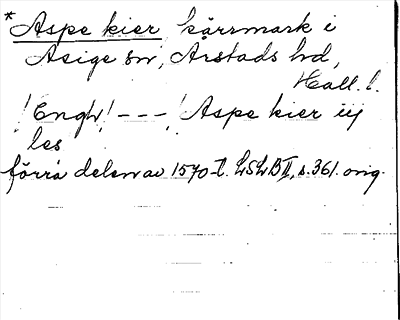 *Aspe kier, kärrmark i
Asige sn, Årstads hd,
Hall. l.
! Engh ! - - - ! Aspe kier iij
les
förra delen av 1570-t. LSLB II, s. 361. orig.